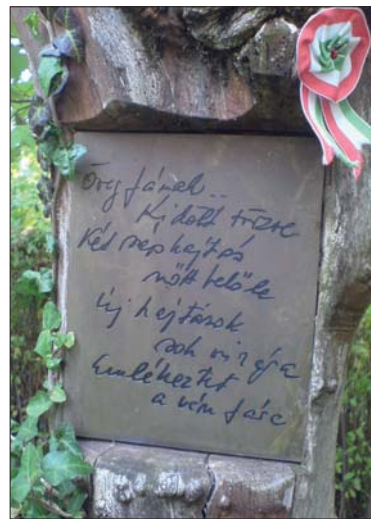 Öreg fának..
Kidőlt törzse
Két szép hajtás
nőtt belőle
Új hajtások
sok virága
Emlékeztet
a vén fára